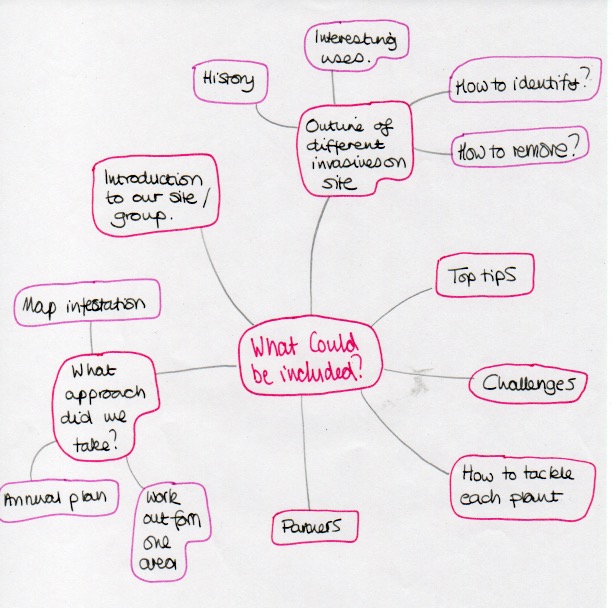 Interesting
uses.
History
How to identify?
Outline of
different
invasives on
site
How to remove?
Introduction
to our site /
group.
Top tips
Map infestation
What Could
be included?
What
approach
did we
take?
Challenges
How to tackle
each plant
Annual plan
Work
out from
one
area
Partners